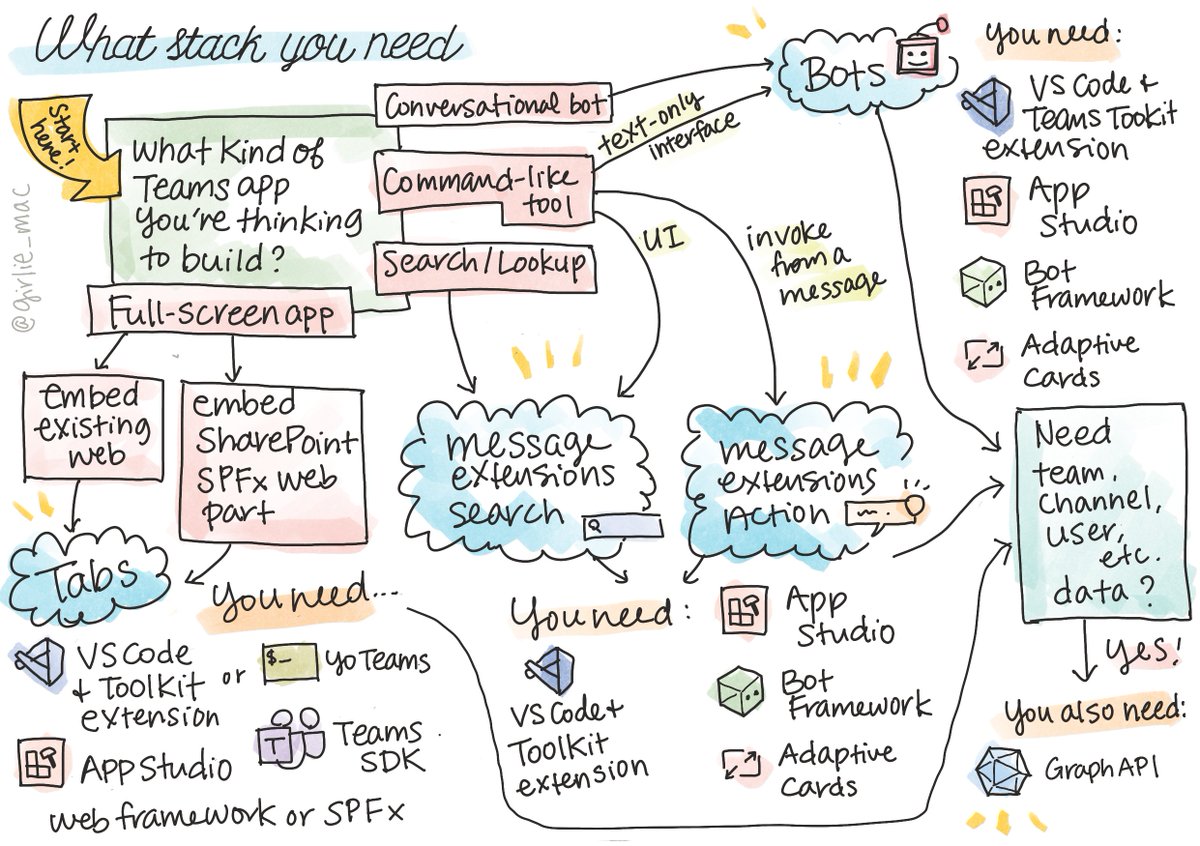 What stack you need
Start
here!
What kind of
Teams app
you're thinking
to build?
Conversational bot
Command-like
tool
Search/Lookup
Full-screen app
text-only
interface
UI
invoke
from a
message
Bots
You need:
VS Code +
Teams Toolkit
extension
App
Studio
Bot
Framework
Adaptive
Cards
@girlie_mac
embed
existing
web
embed
SharePoint
SPFx web
part
Tabs
You need...
VS Code
+ Toolkit
extension
or
$_
yo Teams
App Studio
T
Teams
SDK
web framework or SPFx
message
extensions
search
message
extensions
Action
You need:
VS Code +
Toolkit
extension
App
Studio
Bot
Framework
Adaptive
Cards
Need
team,
channel,
user,
etc.
data?
Yes!
You also need:
Graph API